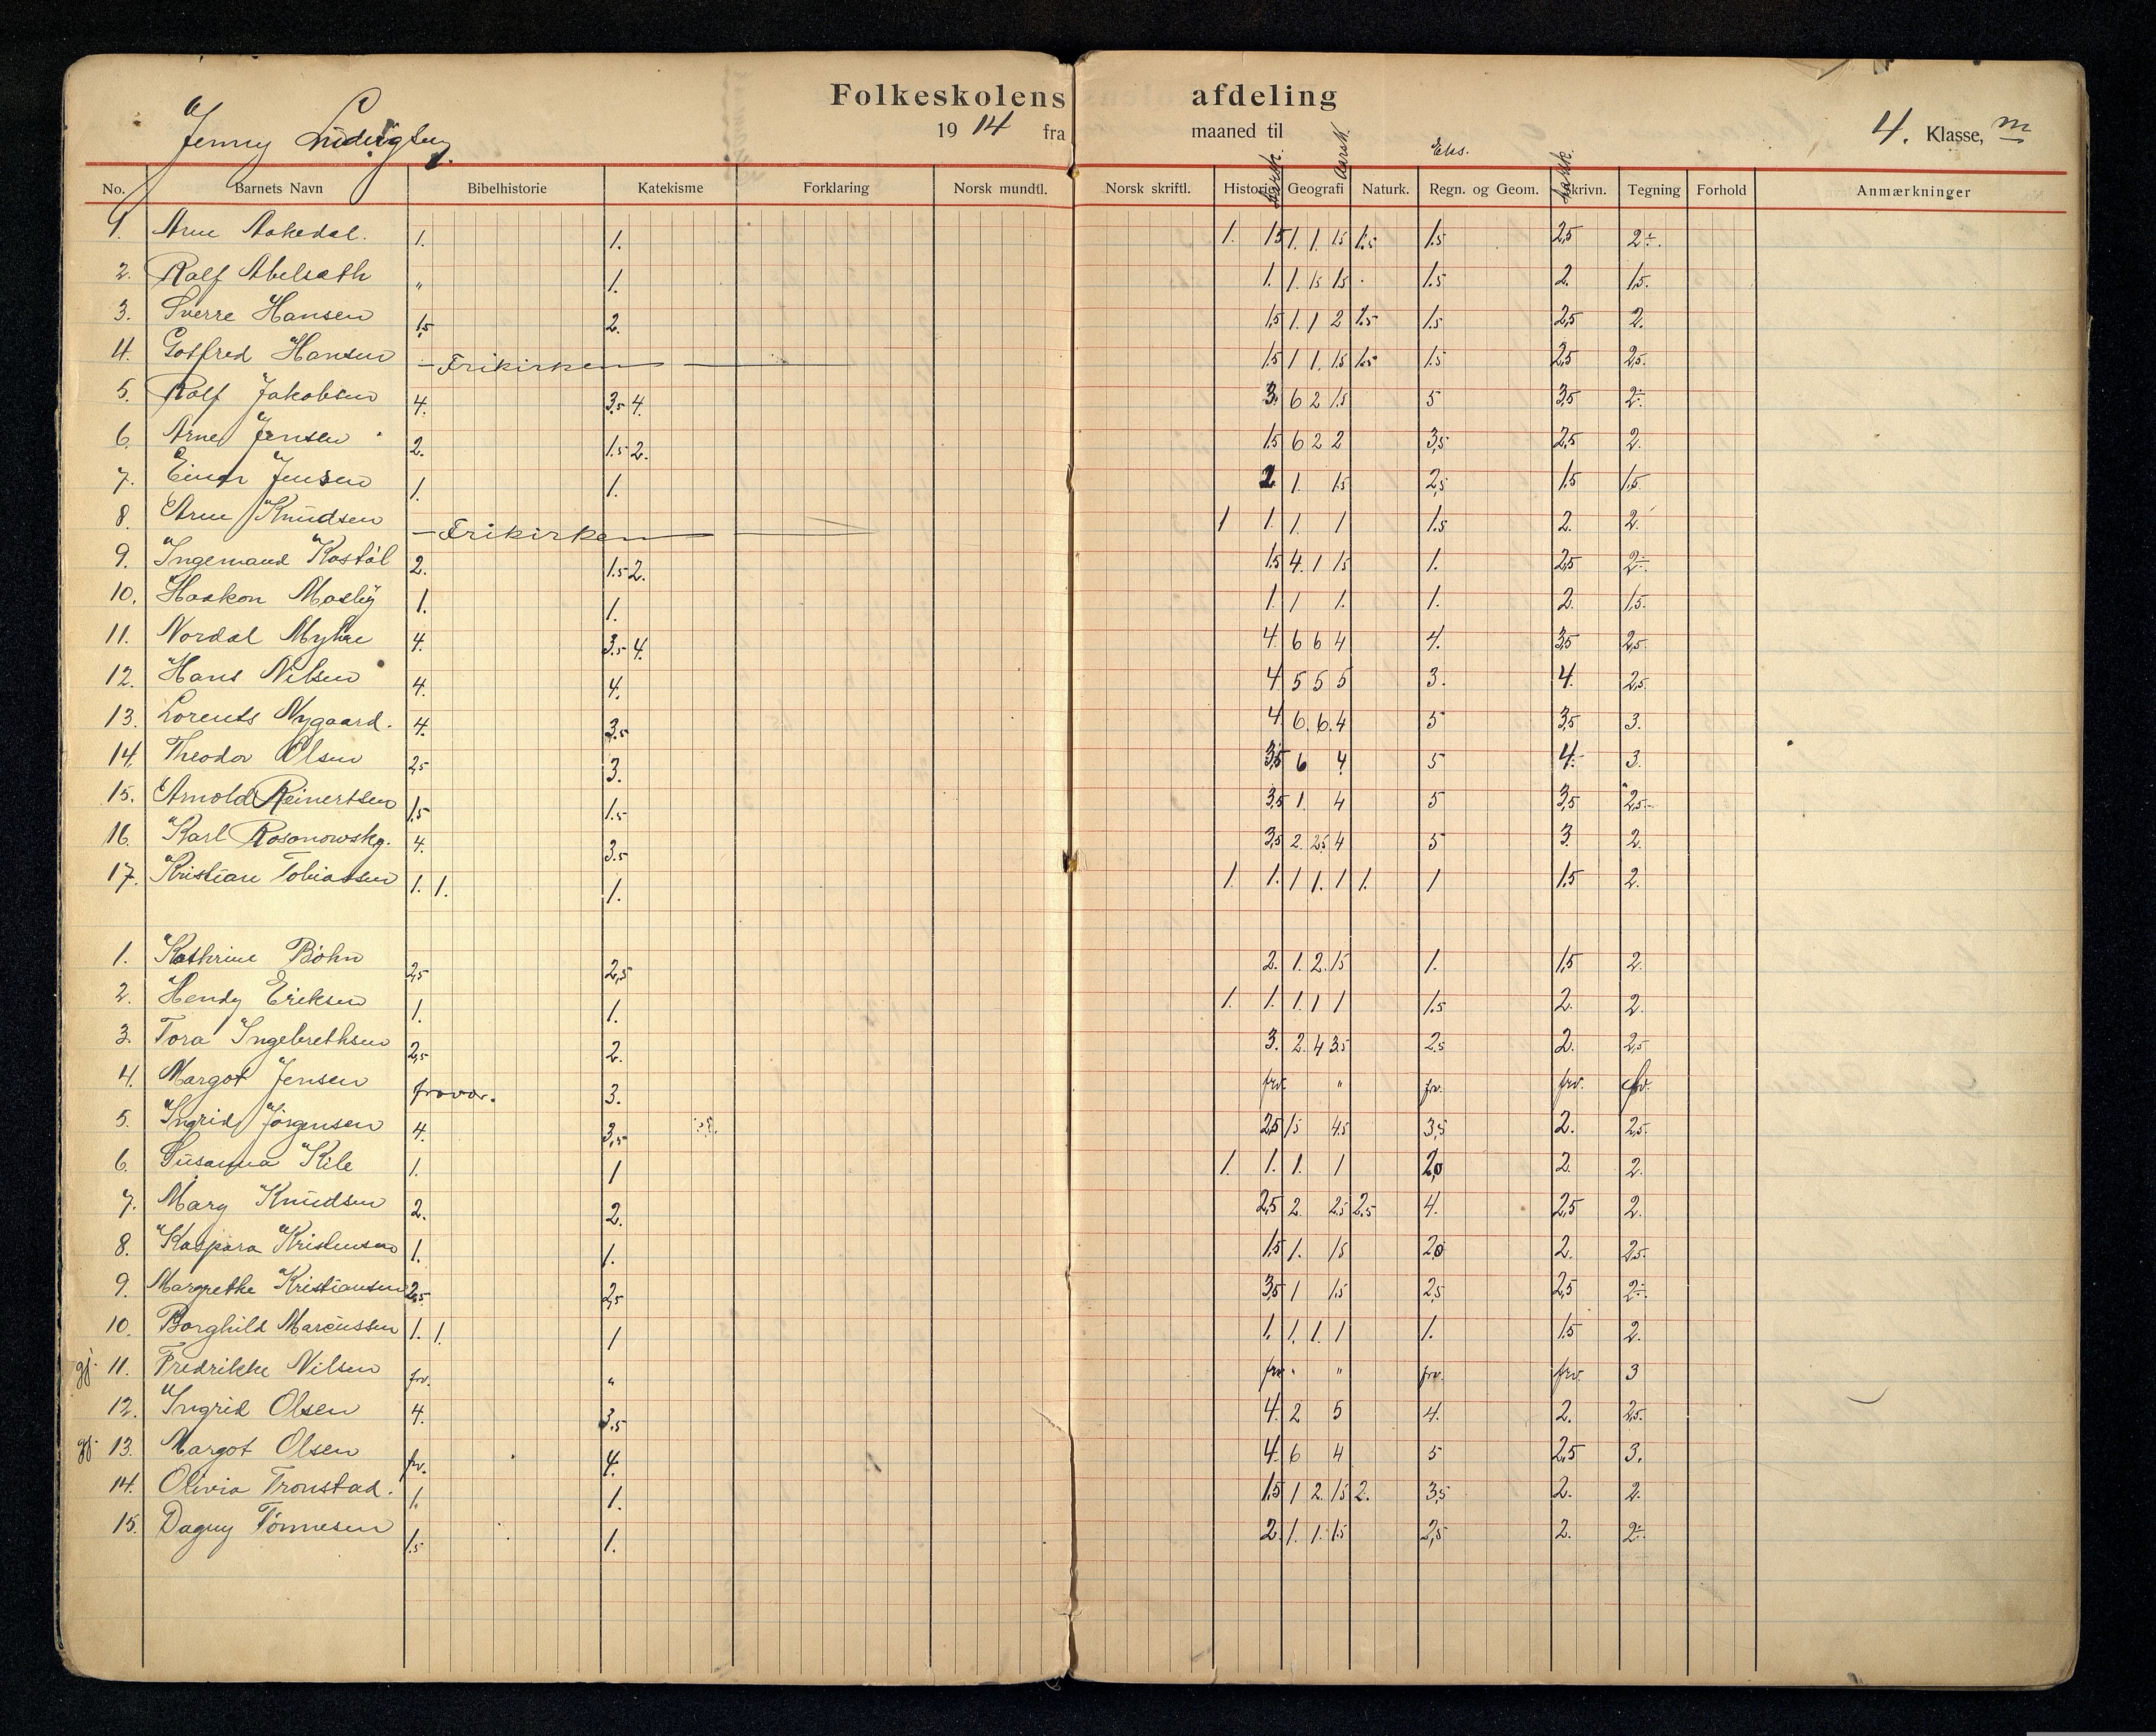 Folkeskolens afdeling
Jenny Ludvigsen. 1914 fra maaned til 4. Klasse, m
Aarsk. Aarsk. Eks. Aarsk.
No. Barnets Navn Bibelhistorie Katekisme Forklaring Norsk mundtl. Norsk skriftl. Historie Geografi Naturk. Regn. og Geom. Skrivn. Tegning Forhold Anmærkninger
1. Arne Aakedal. 1. 1. 1. 1.5 1. 1. 1.5 1.5 1.5 2,5 2÷.
2. Ralf Abelsæth " 1. 1. 1. 1.5 1.5 . 1.5 2. 1,5.
3. Sverre Hansen 1,5 2. 1,5 1. 1 2 1.5 1.5 2,5 2.
4. Gotfred Hansen — Frikirken — 1.5 1 1. 1.5 1.5 1.5 2,5 2,5.
5. Rolf Jakobsen 4. 3.5 4. 3. 6 2 1.5 5 3,5 2÷
6. Arne Jensen 2. 1.5 2. 1.5 6 2 2 3,5 2,5 2.
7. Einar Jensen 1. 1. 2. 1. 1.5 2,5 1.5 1,5.
8. Arne Knudsen — Frikirken — 1 1. 1. 1 1.5 2. 2.
9. Ingemand Kostøl 2. 1.5 2. 1.5 4. 1 1.5 1. 2,5 2÷
10. Haakon Mosby 1. 1. 1. 1 1. 1. 2. 1,5.
11. Nordal Myhre 4. 3.5 4. 4. 6 6 4 4. 3,5 2,5.
12. Hans Nilsen 4. 4. 4. 5 5 5 3. 4. 2,5
13. Lorents Nygaard. 4. 3.5 4. 6. 6. 4 5 3,5 3.
14. Theodor Olsen 2,5 3. 3,5 6 4 5 4. 3.
15. Arnold Reinertsen 1,5 1.5 3,5 1. 4 5 3,5 2,5.
16. Karl Rosonowsky. 4. 3.5 3,5 2. 2.5 4 5 3. 2.
17. Kristian Tobiassen 1. 1. 1. 1. 1. 1 1. 1 1. 1 1.5 2.
1. Kathrine Böhn 2,5 2,5 2. 1. 2. 1.5 1. 1,5 2.
2. Hendy Eriksen 1. 1. 1. 1. 1. 1 1 1.5 2. 2.
3. Tora Ingebrethsen 2,5 2. 3. 2. 4 3.5 2,5 2. 2,5
4. Margot Jensen fravær. 3. frv. " frv. frv. frv.
5. Ingrid Jörgensen 4. 3,5 2,5 1.5 4.5 3,5 2. 2,5.
6. Susanna Kile 1. 1 1. 1. 1. 1 2,0 2. 2.
7. Mary Knudsen 2. 2. 2,5 2. 2.5 2.5 4. 2,5 2.
8. Kaspara Kristensen 1. 1. 1.5 1. 1.5 2,0 2. 2,5.
9. Margrethe Kristiansen 2,5 2,5 3,5 1 1.5 2,5 2,5 2÷.
10. Borghild Marcussen 1. 1. 1 1. 1. 1. 1 1. 1.5 2.
gj. 11. Fredrikke Nilsen frv. " frv. " " frv. frv. 3
12. Ingrid Olsen 4. 3.5 4. 2 5 4. 2. 2,5.
gj. 13. Margot Olsen frv. 4. 4. 6 4 5 2,5 3.
14. Olivia Tronstad. 1. 1. 1.5 1 2. 1.5 2. 3,5 2. 2.
15. Dagny Tönnesen 1.5 1. 2. 1. 1. 1.5 2,5 2. 2÷.